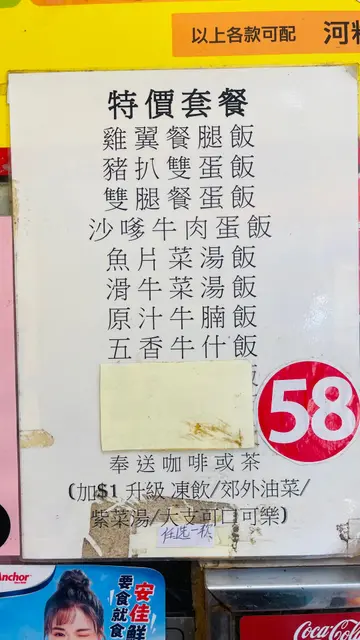 以上各款可配 河
特價套餐
雞翼餐腿飯
豬扒雙蛋飯
雙腿餐蛋飯
沙嗲牛肉蛋飯
魚片菜湯飯
滑牛菜湯飯
原汁牛腩飯
五香牛什飯
飯
58
奉送咖啡或茶
(加$1 升級 凍飲/郊外油菜/
紫菜湯/大支可口可樂)
任選一款
Anchor
安佳鮮
要食就食
Coca-C